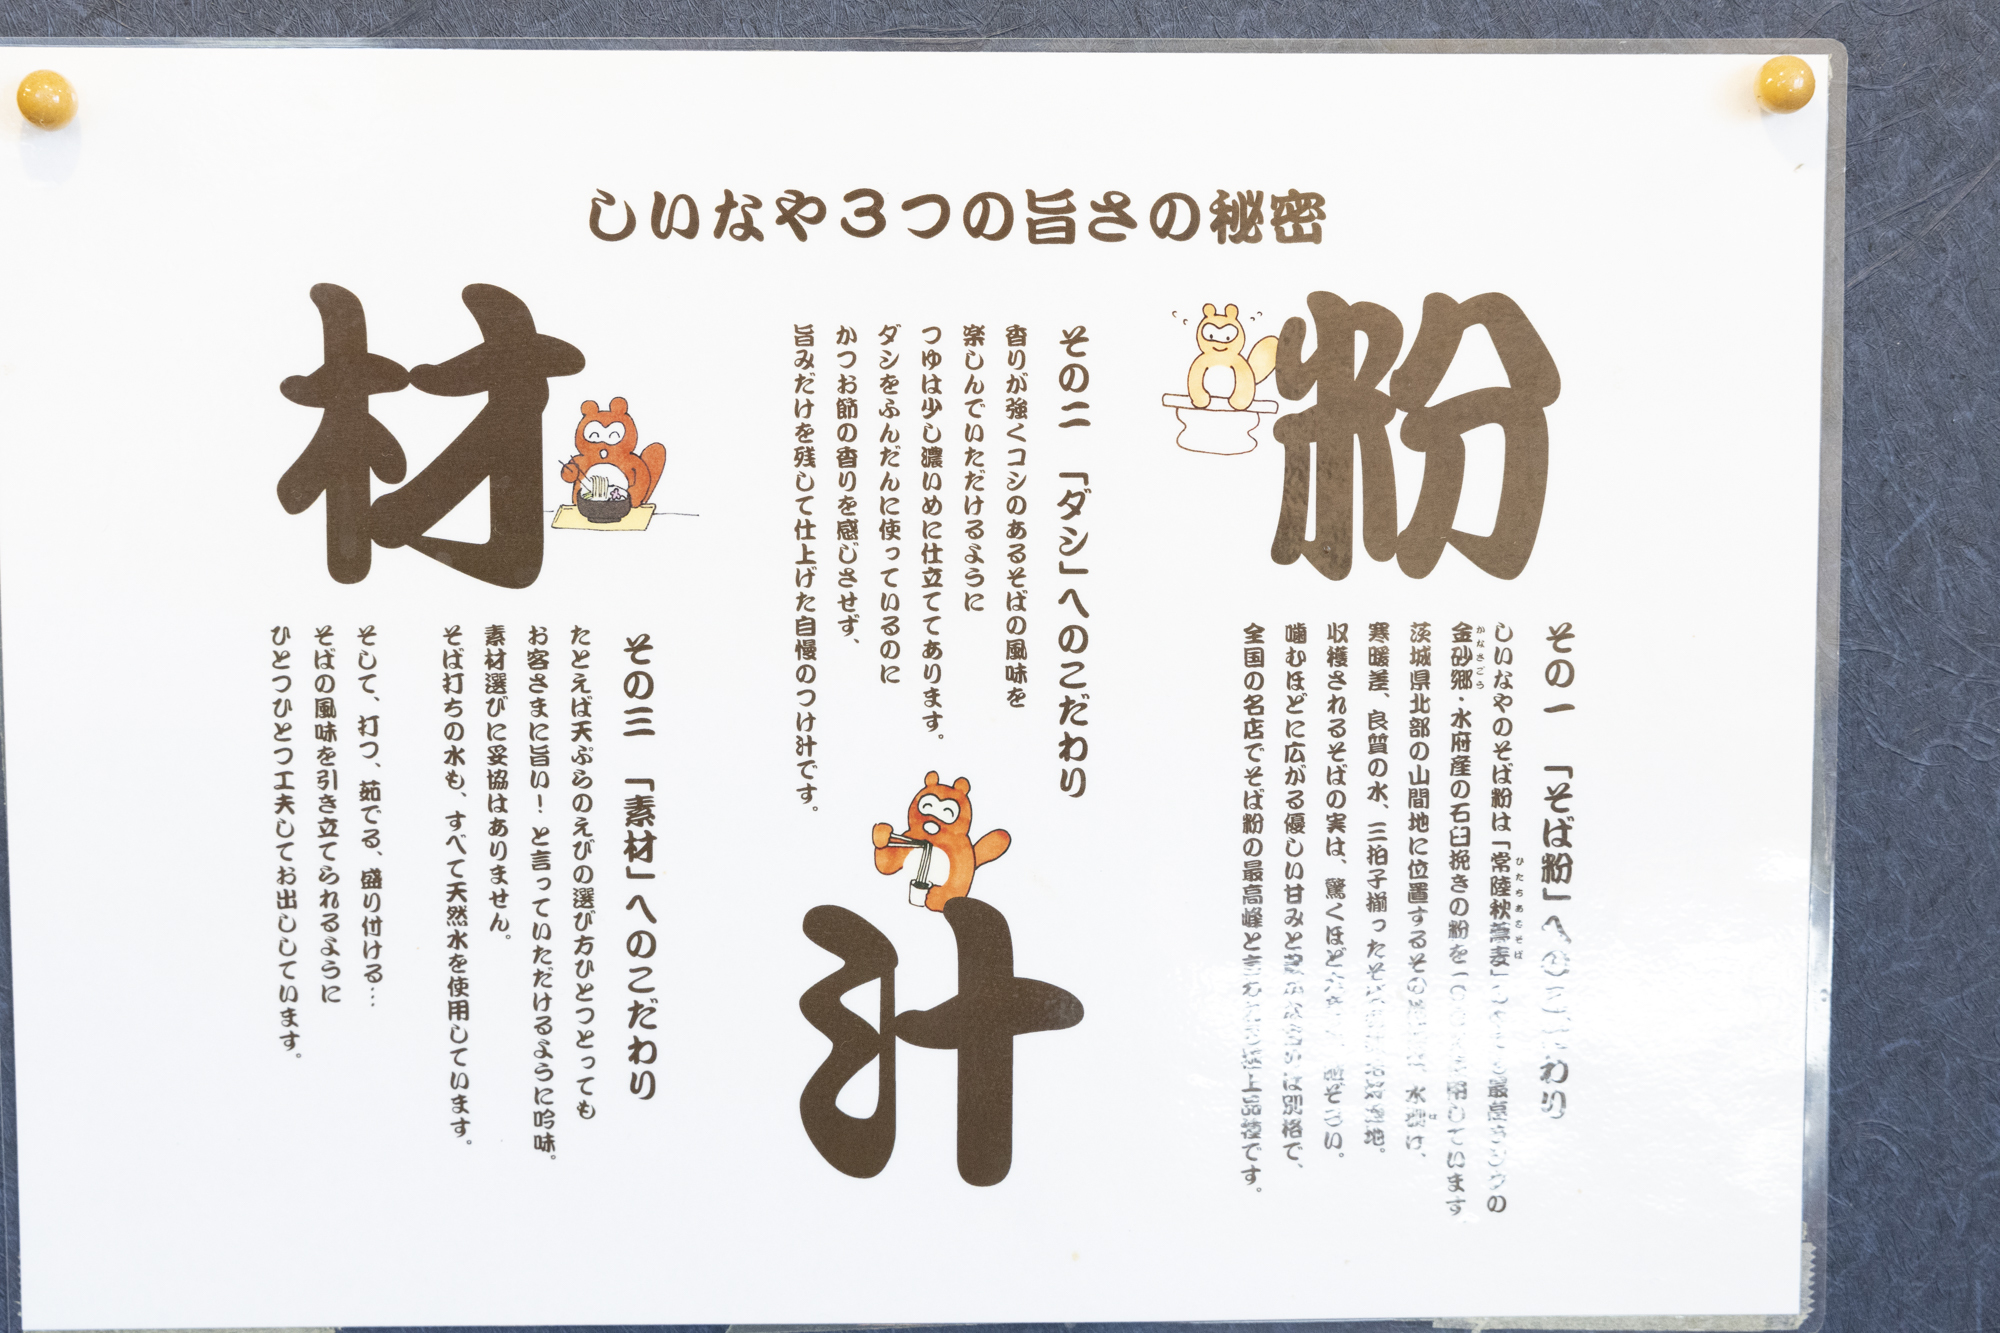 しいなや3つの旨さの秘密
粉
その一 「そば粉」へのこだわり
しいなやのそば粉は「常陸秋蕎麦」 最高 の
ひたちあきそば
金砂郷・水府産の石臼挽きの粉を 用しています
かなさごう
茨城県北部の山間地に位置するその 、水捌け、
は
寒暖差、良質の水、三拍子揃ったそ 地。
収穫されるそばの実は、驚くほど ぞろい。
噛むほどに広がる優しい甘みと は別格で、
全国の名店でそば粉の最高峰と 上品種です。
その二 「ダシ」へのこだわり
香りが強くコシのあるそばの風味を
楽しんでいただけるように
つゆは少し濃いめに仕立ててあります。
ダシをふんだんに使っているのに
かつお節の香りを感じさせず、
旨みだけを残して仕上げた自慢のつけ汁です。
汁
材
その三 「素材」へのこだわり
たとえば天ぷらのえびの選び方ひとつとっても
お客さまに旨い!と言っていただけるように吟味。
素材選びに妥協はありません。
そば打ちの水も、すべて天然水を使用しています。
そして、打つ、茹でる、盛り付ける…
そばの風味を引き立てられるように
ひとつひとつ工夫してお出ししています。